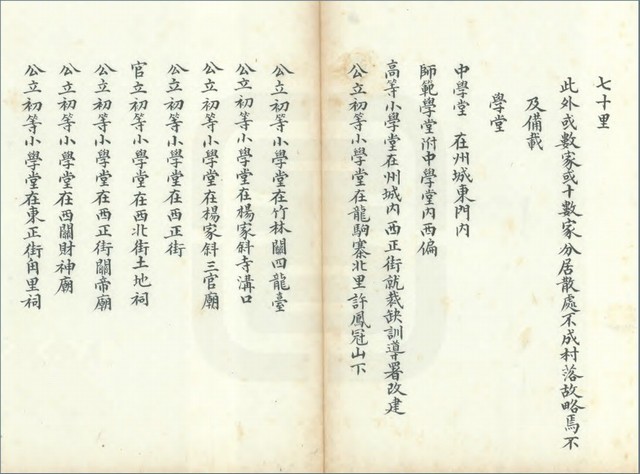 七十里
此外或數家或十數家分居散處不成村落故略焉不
及備載
學堂
中學堂 在州城東門內
師範學堂附中學堂內西偏
高等小學堂在州城內西正街就裁缺訓導署改建
公立初等小學堂在龍駒寨北里許鳳冠山下
公立初等小學堂在竹林關四龍臺
公立初等小學堂在楊家斜寺溝口
公立初等小學堂在楊家斜三官廟
公立初等小學堂在西正街
官立初等小學堂在西北街土地祠
公立初等小學堂在西正街關帝廟
公立初等小學堂在西關財神廟
公立初等小學堂在東正街甪里祠